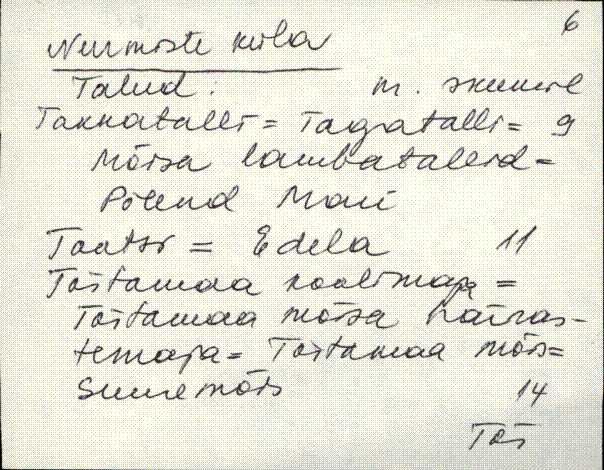 6
Nurmiste küla
Talud: m. skeemil
Taknatalli = Tagatalli = 9
Mõisa lambatallid =
Põlend Mari
Taatsi = Edela 11
Tõstamaa koolimaja =
Tõstamaa mõisa häras-
temaja = Tõstamaa mõis =
Suuremõis 14
Tõs